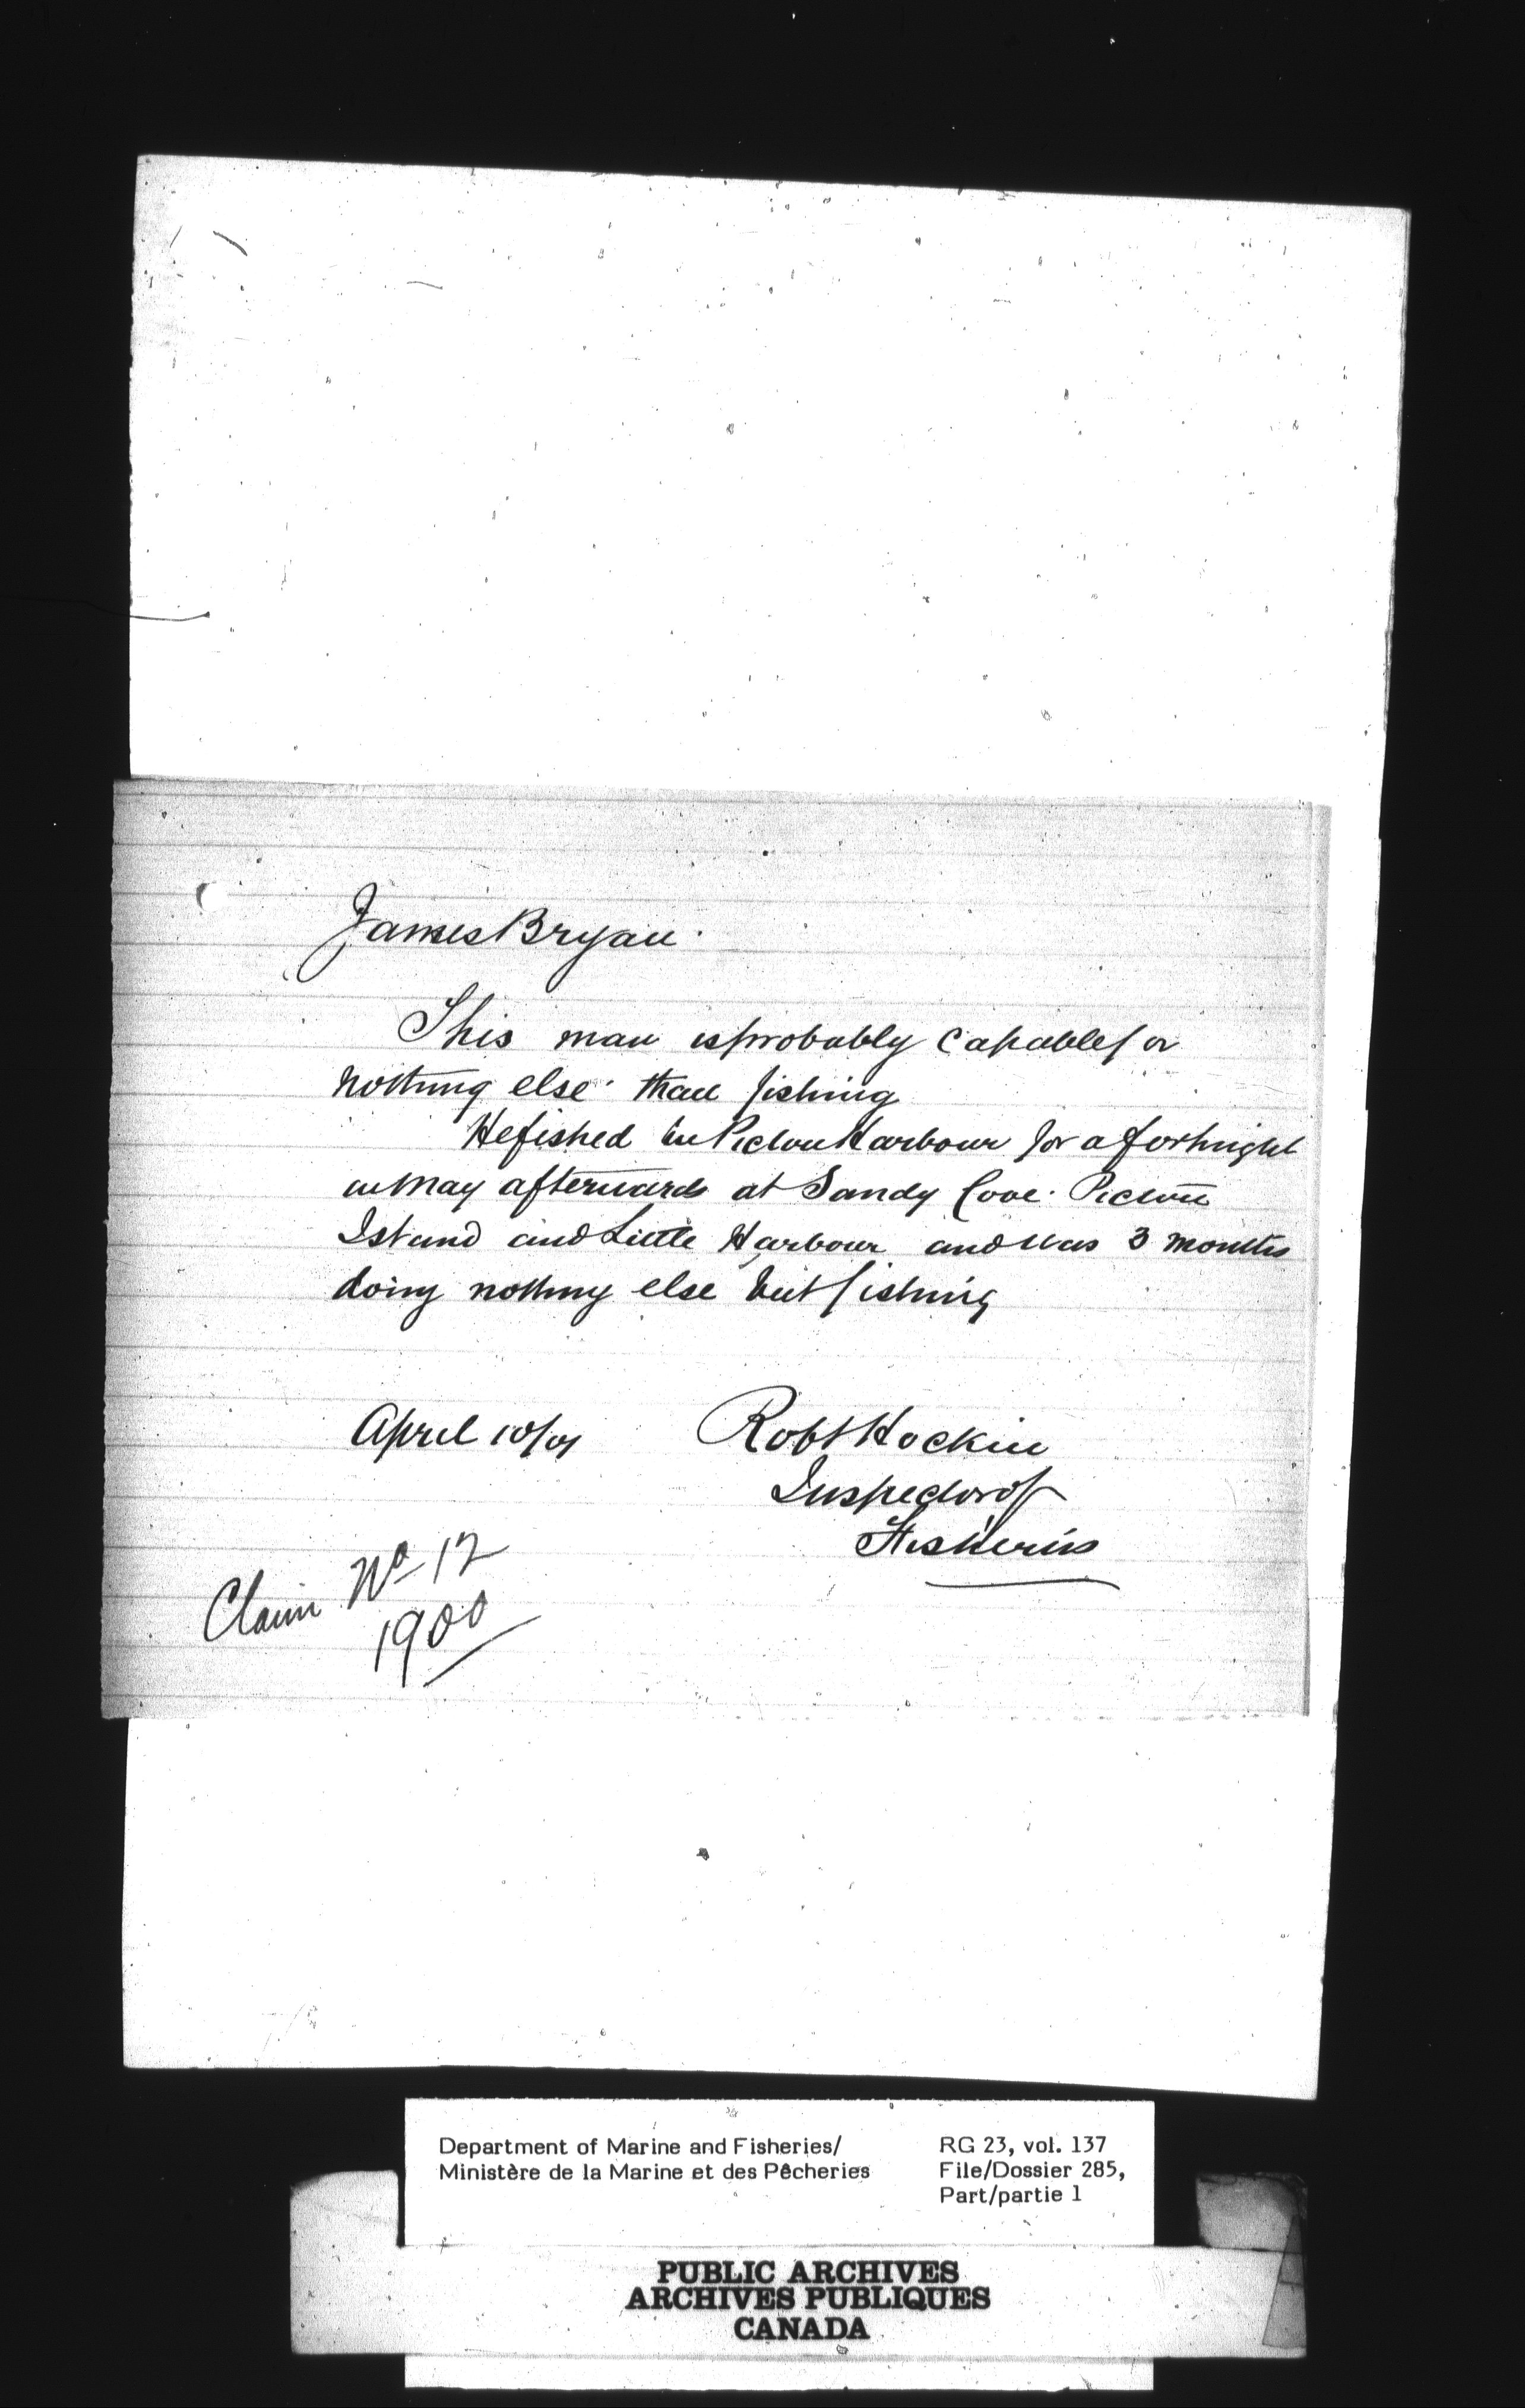 James Bryan.
This man is probably capable for
nothing else than fishing
He fished in Pictou Harbour for a fortnight
in May afterwards at Sandy Cove. Pictou
Island and Little Harbour and was 3 months
doing nothing else but fishing
April 10/01
Robt Hockin
Inspector of
Fisheries
Claim No 12
1900
Department of Marine and Fisheries/
Ministère de la Marine et des Pêcheries
RG 23, vol. 137
File/Dossier 285,
Part/partie 1
PUBLIC ARCHIVES
ARCHIVES PUBLIQUES
CANADA